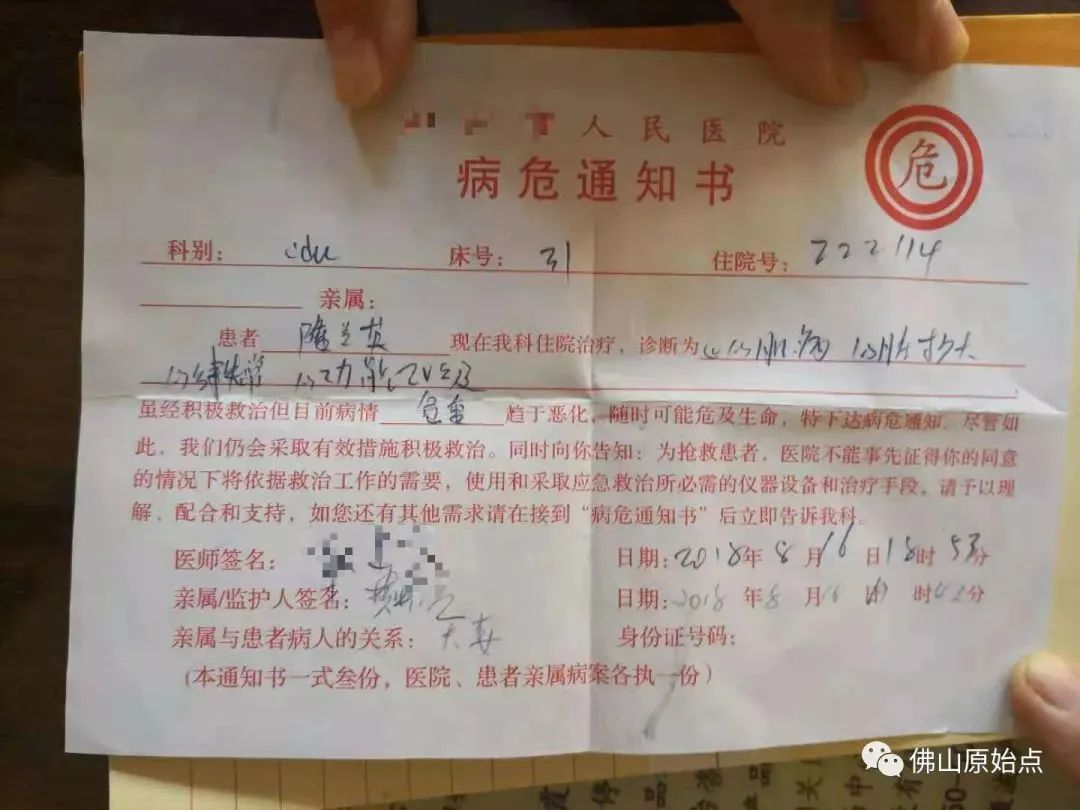 人民医院
危
病危通知书
科别: cdu 床号: 31 住院号: 222114
亲属:
患者 陈兰英 现在我科住院治疗，诊断为 心肌病 心脏扩大
心律失常 心功能IV级
虽经积极救治但目前病情 危重 趋于恶化，随时可能危及生命，特下达病危通知。尽管如
此，我们仍会采取有效措施积极救治。同时向你告知：为抢救患者，医院不能事先证得你的同意
的情况下将依据救治工作的需要，使用和采取应急救治所必需的仪器设备和治疗手段，请予以理
解、配合和支持，如您还有其他需求请在接到“病危通知书”后立即告诉我科。
医师签名: 日期: 2018年 8 月 16 日 18时 53分
亲属/监护人签名: 日期: 2018 年 8 月 16 日 时 分
亲属与患者病人的关系: 夫妻 身份证号码:
(本通知书一式叁份，医院、患者亲属病案各执一份)
佛山原始点